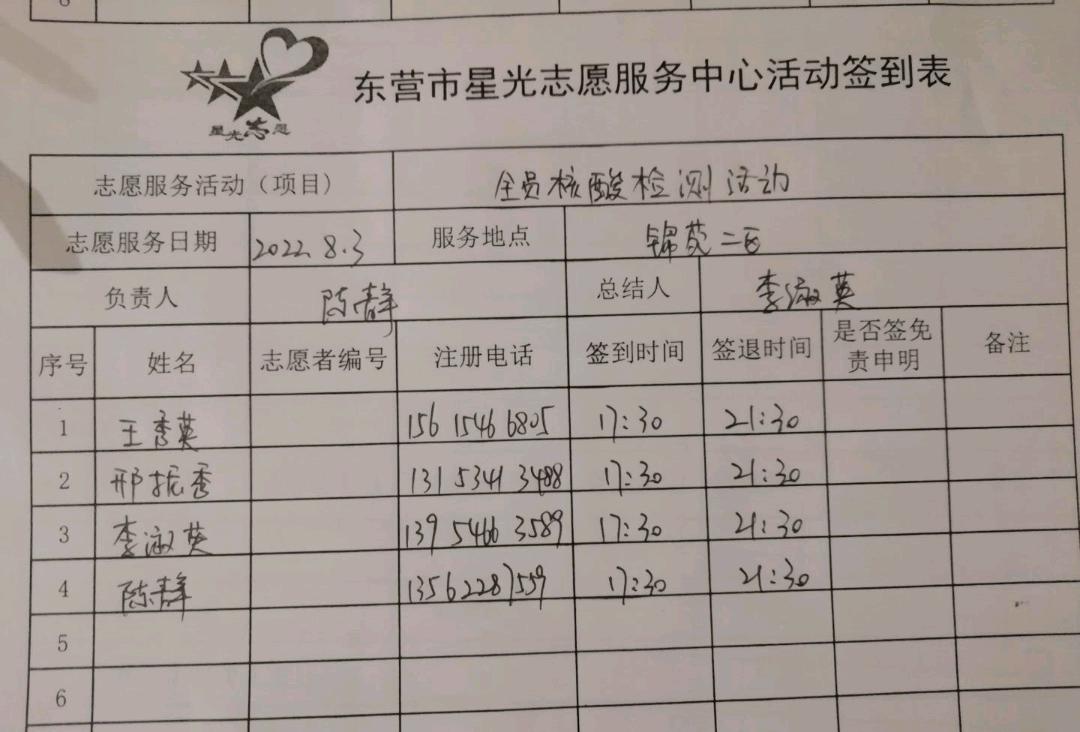 8
星光志愿
东营市星光志愿服务中心活动签到表
志愿服务活动（项目） 全员核酸检测活动
志愿服务日期 2022.8.3 服务地点 锦苑二区
负责人 陈静 总结人 李淑英
序号 姓名 志愿者编号 注册电话 签到时间 签退时间 是否签免责申明 备注
1 王秀英 156 1546 6805 17:30 21:30
2 邢振秀 131 5341 3488 17:30 21:30
3 李淑英 139 5466 3589 17:30 21:30
4 陈静 13562287559 17:30 21:30
5
6